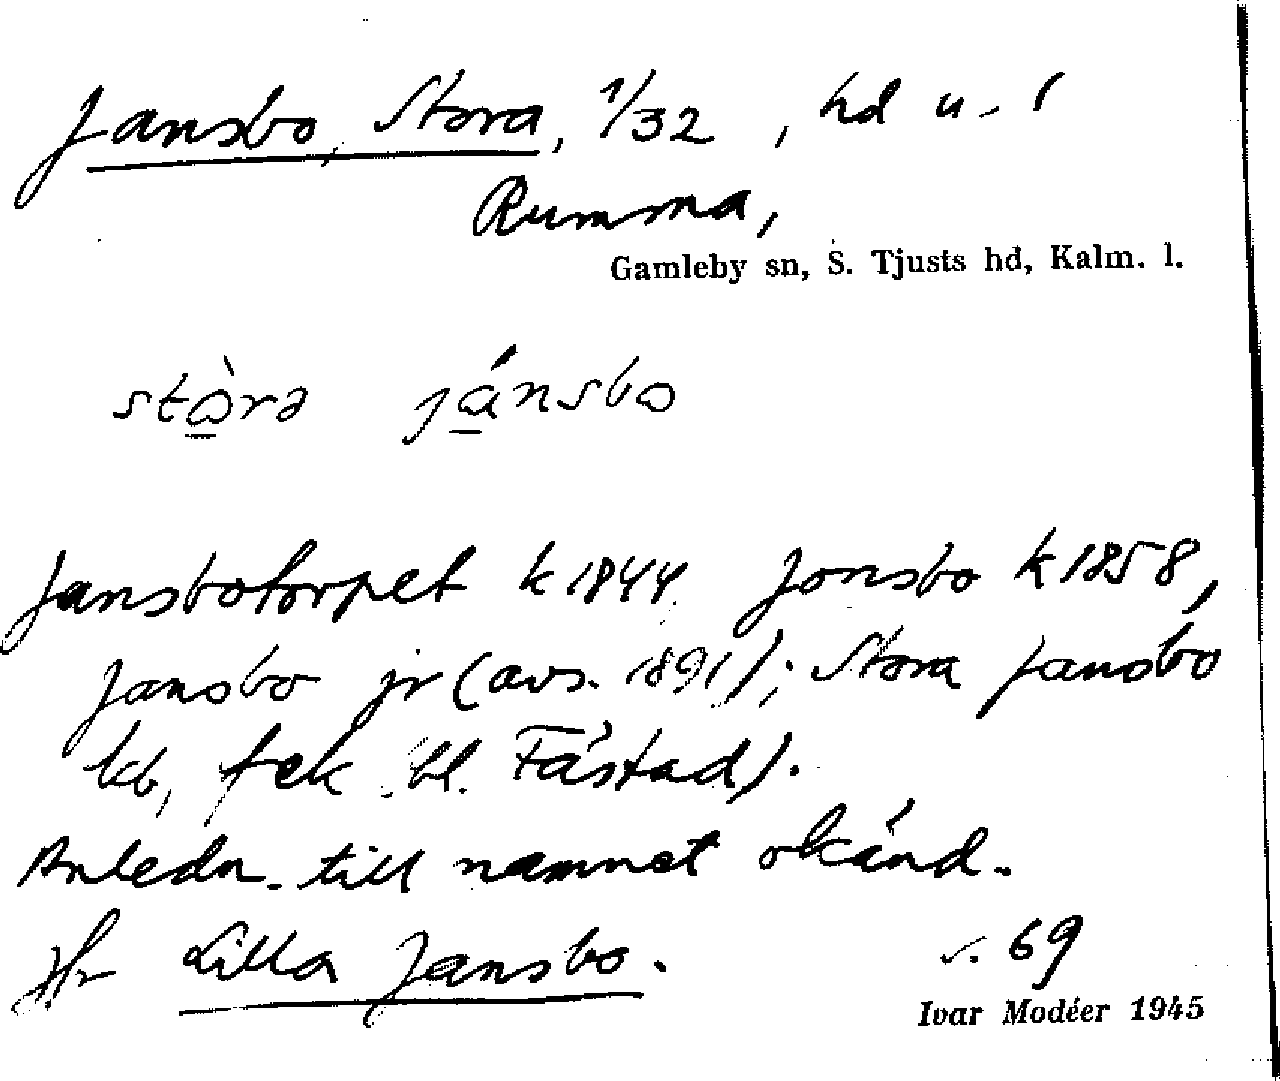 Jansbo, Stora, 1/32, hd u. i
Rumma,
Gamleby sn, S. Tjusts hd, Kalm. l.
stòrə jánsbo
Jansbotorpet k 1844 Jonsbo k 1858,
Jansbo jr (avs. 1891); Stora Jansbo
kb, fek bl. Fästad).
Anledn. till namnet okänd.
Jfr Lilla Jansbo. s. 69
Ivar Modéer 1945